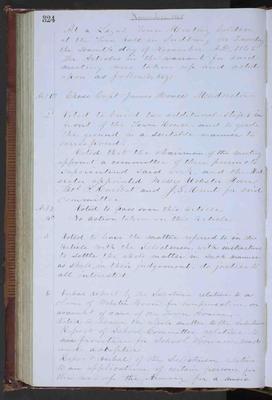 324
November 1865
At a Legal Town Meeting holden
at the Town held in on Tuesday
the day of November A.D. 1865
The Articles in the warrant for said
meeting were taken up and acted
upon as follows. Viz;
Art 1st Chose Capt James Howes Moderator
2 Voted to build two additional steps in
front of the Town House and to grade
the ground in a suitable manner to
correspond.
Voted that the chairman of the meeting
appoint a committee of three persons to
Superintend said work, and the Mod
erator appointed Messrs Webster Howes
and J. S. for said
Committee.
Art 3d Voted to pass over this article.
4th No action taken on this Article
5 Voted to leave the matter referred to in the
Article with the Selectmen with instructions
to settle the whole matter in such manner
as shall in their judgement do justice to
all interested
6 Verbal report by the Selectmen relative to a
claim of for compensation on
account of care of the Town House.
Voted to leave the whole matter to the Selectmen
Report of School Committee relative to
for School Houses made
and accepted
Report verbal of the Selectmen relative
to an application of certain persons for
the use of the Armory for a